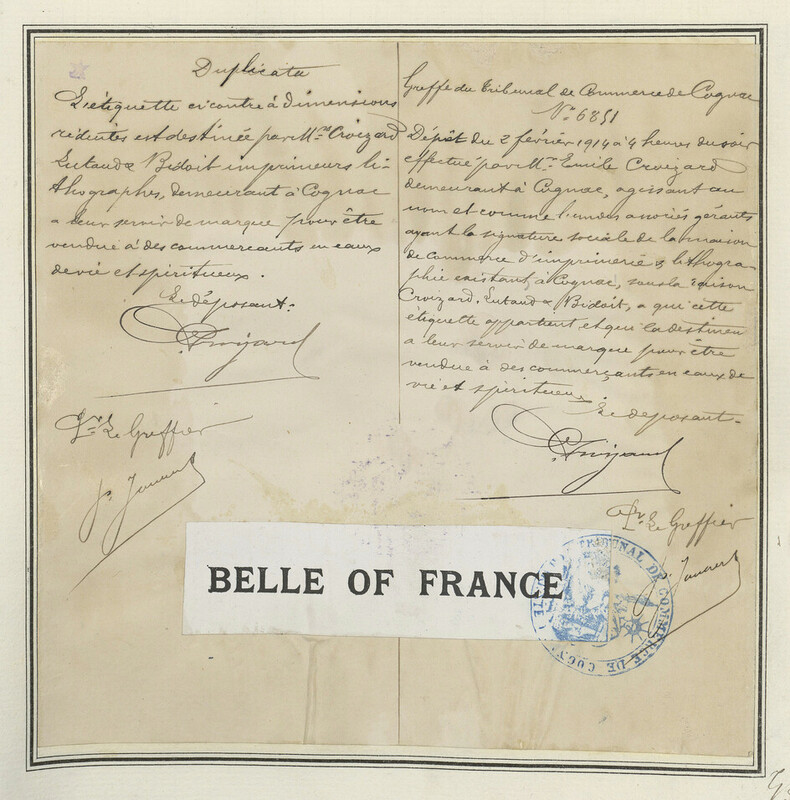 Duplicata
L'étiquette ci contre à dimensions
réduites est destinée par M.rs Croizard
Lutaud & Bidoit imprimeurs li-
thographes, demeurant à Cognac
a leur servir de marque pour être
vendue à des commerçants en eaux
de vie et spiritueux.
Le déposant.
Croizard
Pr. Le Greffier
Greffe du Tribunal de Commerce de Cognac
N° 6851
Dépôt du 2 février 1914 à 4 heures du soir
effectué par Mr. Emile Croizard
demeurant à Cognac, agissant au
nom et comme l'un des associés gérants
ayant la signature sociale de la maison
de commerce d'imprimerie & lithogra-
phie existant à Cognac, sous la raison
Croizard, Lutaud & Bidoit, a qui cette
étiquette appartient et qui la destinent
a leur servir de marque pour être
vendue à des commerçants en eaux de
vie et spiritueux.
Le deposant.
Croizard
Pr. Le Greffier
BELLE OF FRANCE
TRIBUNAL DE COMMERCE DE COGNAC